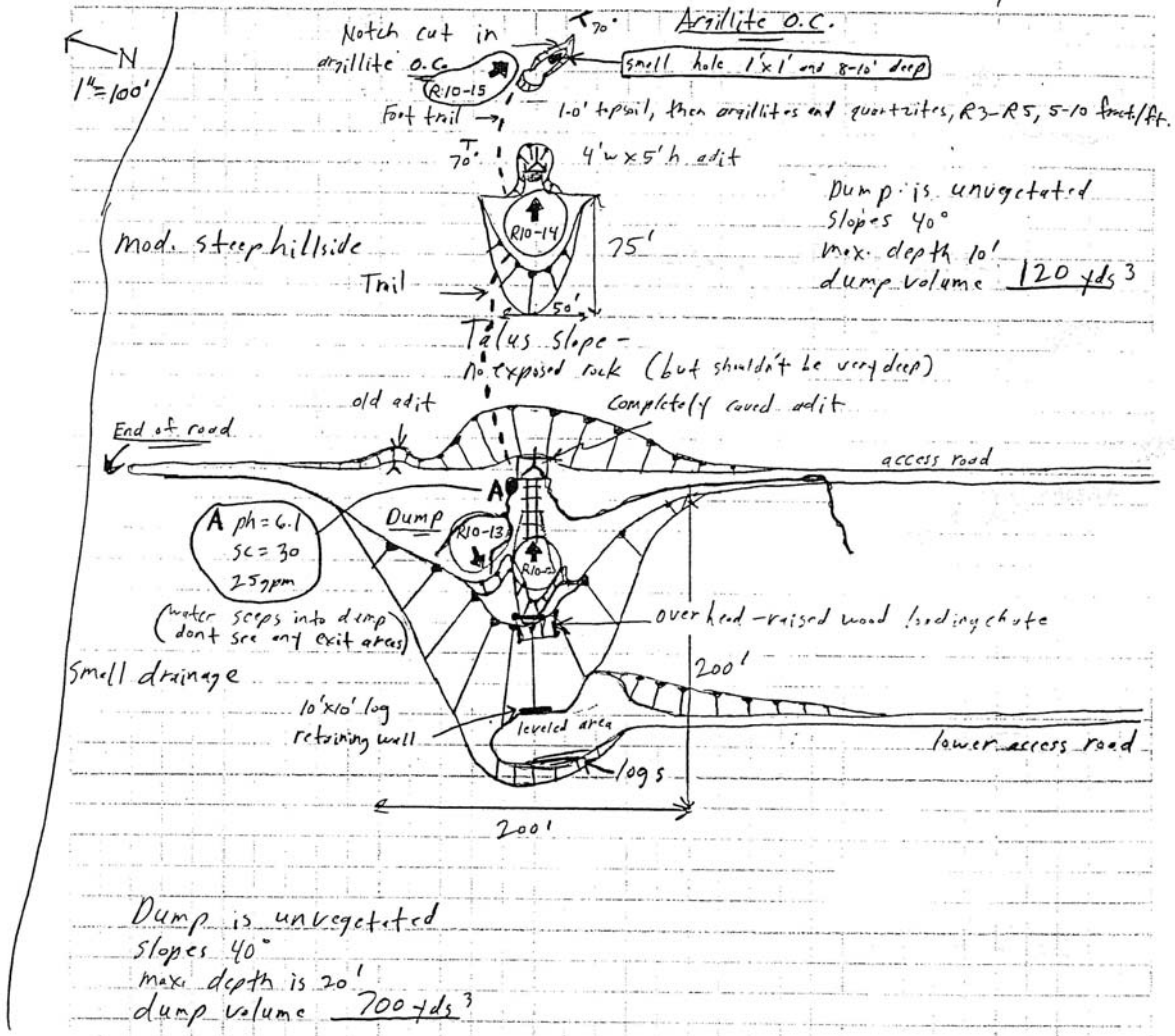 N
1"=100'
Notch cut in
argillite O.C.
R10-15
70°
Argillite O.C.
small hole 1'x1' and 8-10' deep
Foot trail
1.0' topsoil, then argillites and quartzites, R3-R5, 5-10 fract./ft.
70°
4'w x 5'h adit
R10-14
75'
50'
Dump is unvegetated
slopes 40°
max. depth 10'
dump volume 120 yds³
mod. steep hillside
Trail
Talus slope -
no exposed rock (but shouldn't be very deep)
old adit
Completely caved adit
End of road
access road
A
A ph = 6.1
sc = 30
25gpm
Dump
R10-13
(water seeps into dump
dont see any exit areas)
overhead-raised wood loading chute
200'
Small drainage
10'x10' log
retaining wall
leveled area
lower access road
logs
200'
Dump is unvegetated
slopes 40°
max. depth is 20'
dump volume 700 yds³